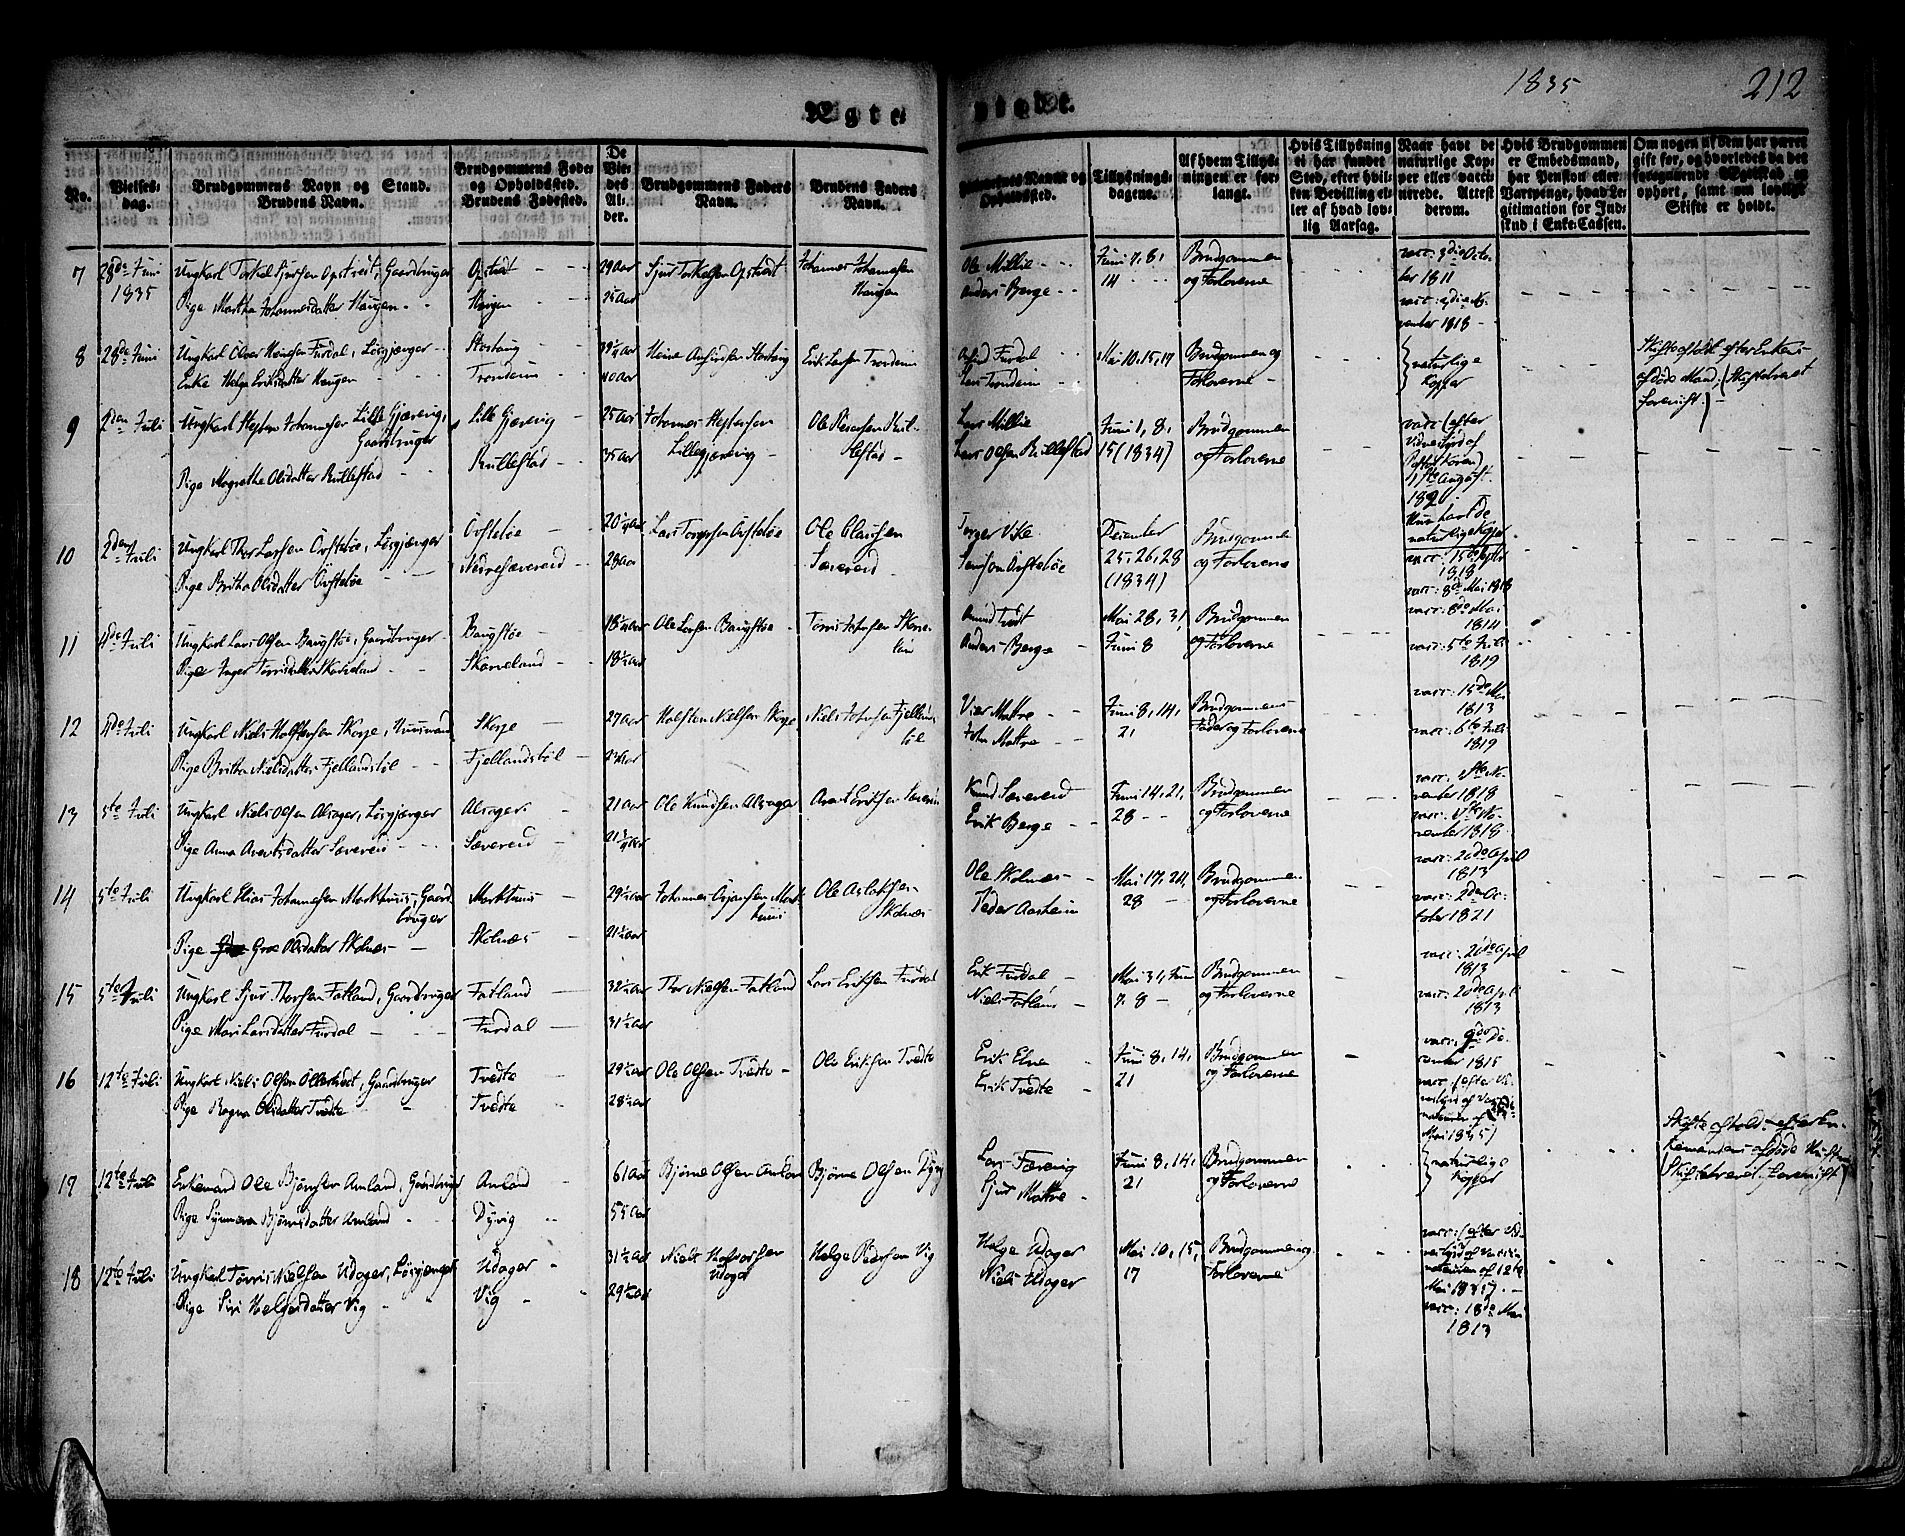 1835
212
Ægte viede.
No.
Vielses-
dag.
Brudgommens Navn og Stand.
Brudens Navn.
Brudgommens Føde-
og Opholdssted.
Brudens Fødested.
De
Vie-
des
Al-
der.
Brudgommens Faders
Navn.
Brudens Faders
Navn.
Forlovernes Navne og
Opholdssted.
Tillysnings-
dagene.
Af hvem Tillys-
ningen er for-
langt.
Hvis Tillysning
ei har fundet
Sted, efter hvil-
ken Bevilling el-
ler af hvad lov-
lig Aarsag.
Naar havt de
naturlige Kop-
per eller vacci-
nerede. Attest
derom.
Hvis Brudgommen
er Embedsmand,
har Pension eller
Vartpenge, hvad Le-
gitimation for Ind-
skud i Enke-Cassen.
Om nogen af dem har været
gift før, og hvorledes da det
foregaaende Ægteskab er
ophørt, samt om lovligt
Skifte er holdt.
7
28de Juni
1835
Ungkarl Torkel Sjursen Opstvet, Gaardbruger
Pige Martha Johannesdatter Haugen
Opstvet
Haugen
29 Aar
25 Aar
Sjur Torkelsen Opstvedt
Johannes Johannesen
Haugen
Ole Millie
Anders Berge
Juni 7, 8,
14
Brudgommen
og Forloverne
vacc: 3die Octo-
ber 1811
vacc: 3die No-
vember 1818
8
28de Juni
Ungkarl Oluer Heinesen Furdal, Løsgjænger
Enke Helga Eriksdatter Haugen
Trondeim
39 1/4 Aar
40 Aar
Erik Larsen Trondeim
Furdal
Lars Trondeim
Mai 10, 15, 17
Brudgommen og
Forloverne
naturlige
Kopper
Skifte afholdt efter Enkens
afdøde Mand; (Skiftebrevet
foreviist)
9
2den Juli
Ungkarl Johannesen Lille Gjærevig,
Gaardbruger
Pige Magrethe Olsdatter Rullestad
Lille Gjærevig
Rullestad
25 Aar
35 Aar
Johannes
Lillegjærevig
Ole Rul-
lestad
Lars Millie
Lars Olsen Rullestad
Juni 1, 8,
15 (1834)
Brudgommen
og Forloverne
vacc: (efter
Vidnesbyrd af
Pastor Koren)
11te August
1820
Hun havt de
naturlige Kopper
10
2den Juli
Ungkarl Thor Larsen Øvstebøe, Løsgjænger
Pige Britha Olsdatter Øvstebøe
Øvstebøe
Nedresævereid
20 3/4 Aar
28 Aar
Lars Torgersen Øvstebøe
Ole Clausen
Sævereid
Torger Vike
Samson Øvstebøe
December
25, 26, 28
(1834)
Brudgommen
og Forloverne
vacc: 15de Septbr
1818
vacc: 8de Mai 1818
11
4de Juli
Ungkarl Lars Olsen Baugstøe, Gaardbruger
Pige Inger Torrisdatter Skarveland
Baugstøe
Skarveland
18 1/4 Aar
18 1/2 Aar
Ole Larsen Baugstøe
Torris Johnsen Skarve-
lan
Amund Tvedt
Anders Berge
Mai 28, 31
Juni 8
Brudgommen
og Forloverne
vacc: 8de Mai
1814
vacc: 5te Juli
1819
12
4de Juli
Ungkarl Niels Halstensen Skorpe, Huusmand
Pige Britha Nielsdatter Fjellandsbøl
Skorpe
Fjellandsbøl
27 Aar
Halsten Nielsen Skorpe
Niels Johnsen Fjellands-
bøl
Vier Mattre
John Mattre
Juni 8, 14,
21
Brudgommens
Fader og Forloverne
vacc: 15de Mai
1813
vacc: 6te Juli
1819
13
5te Juli
Ungkarl Niels Olsen Alsager, Løsgjænger
Pige Anna Arentsdatter Sævereid
Alsager
Sævereid
21 Aar
21 3/4 Aar
Ole Knudsen Alsager
Arent Eriksen Sævereid
Knud Sævereid
Erik Berge
Juni 14, 21,
28
Brudgommen
og Forloverne
vacc: 5te No-
vember 1818
vacc: 5te No-
vember 1818
14
5te Juli
Ungkarl Elias Johannesen Markhuus, Gaard-
bruger
Pige Groe Olsdatter Skolnæs
Markhuus
Skolnæs
29 1/2 Aar
21 1/2 Aar
Johannes Mark-
huus
Ole Aslaksen
Skolnæs
Ole Skolnæs
Peder Aasheim
Mai 17, 24,
28
Brudgommen
og Forloverne
vacc: 20de April
1813
vacc: 2den Oc-
tober 1821
15
5te Juli
Ungkarl Sjur Thorsen Fatland, Gaardbruger
Pige Mari Larsdatter Furdal
Fatland
Furdal
32 1/2 Aar
31 1/2 Aar
Thor Nielsen Fatland
Lars Eriksen Furdal
Erik Furdal
Niels Fatland
Mai 31, Juni
7, 8
Brudgommen
og Forloverne
vacc: 20de April
1813
vacc: 20de April
1813
16
12te Juli
Ungkarl Niels Olsen Ollertvedt, Gaardbruger
Pige Ragna Olsdatter Tvedte
Tvedte
Tvedte
29 1/2 Aar
28 1/2 Aar
Ole Olsen Tvedte
Ole Eriksen Tvedte
Erik Elne
Erik Tvedte
Juni 8, 14,
21
Brudgommen
og Forloverne
vacc: 9de De-
cember 1815
vacc: (efter Vid-
Mai 1835)
17
12te Juli
Enkemand Ole Bjørnsen Amland, Gaardbruger
Pige Synneva Bjørnsdatter Amland
Amland
Dyvig
61 Aar
55 Aar
Bjørne Olsen Amland
Bjørne Olsen Dyvig
Lars Færevig
Sjur Mattre
Juni 8, 14,
21
Brudgommen
og Forloverne
naturlige
Kopper
Skifte afholdt efter En-
kemandens afdøde Hustru
(Skiftebrevet foreviist)
18
12te Juli
Ungkarl Torris Nielsen Udager, Løsgjænger
Pige Siri Helgesdatter Vig
Udager
Vig
31 1/2 Aar
29 1/2 Aar
Niels Halvorsen
Udager
Helge Pedersen Vig
Helge Udager
Niels Udager
Mai 10, 15,
17
Brudgommen og
Forloverne
vacc: (efter Vid-
nesbyrd af Vaccin-
nateuren af 12te
Mai 1835)
vacc: 18de Mai
1813